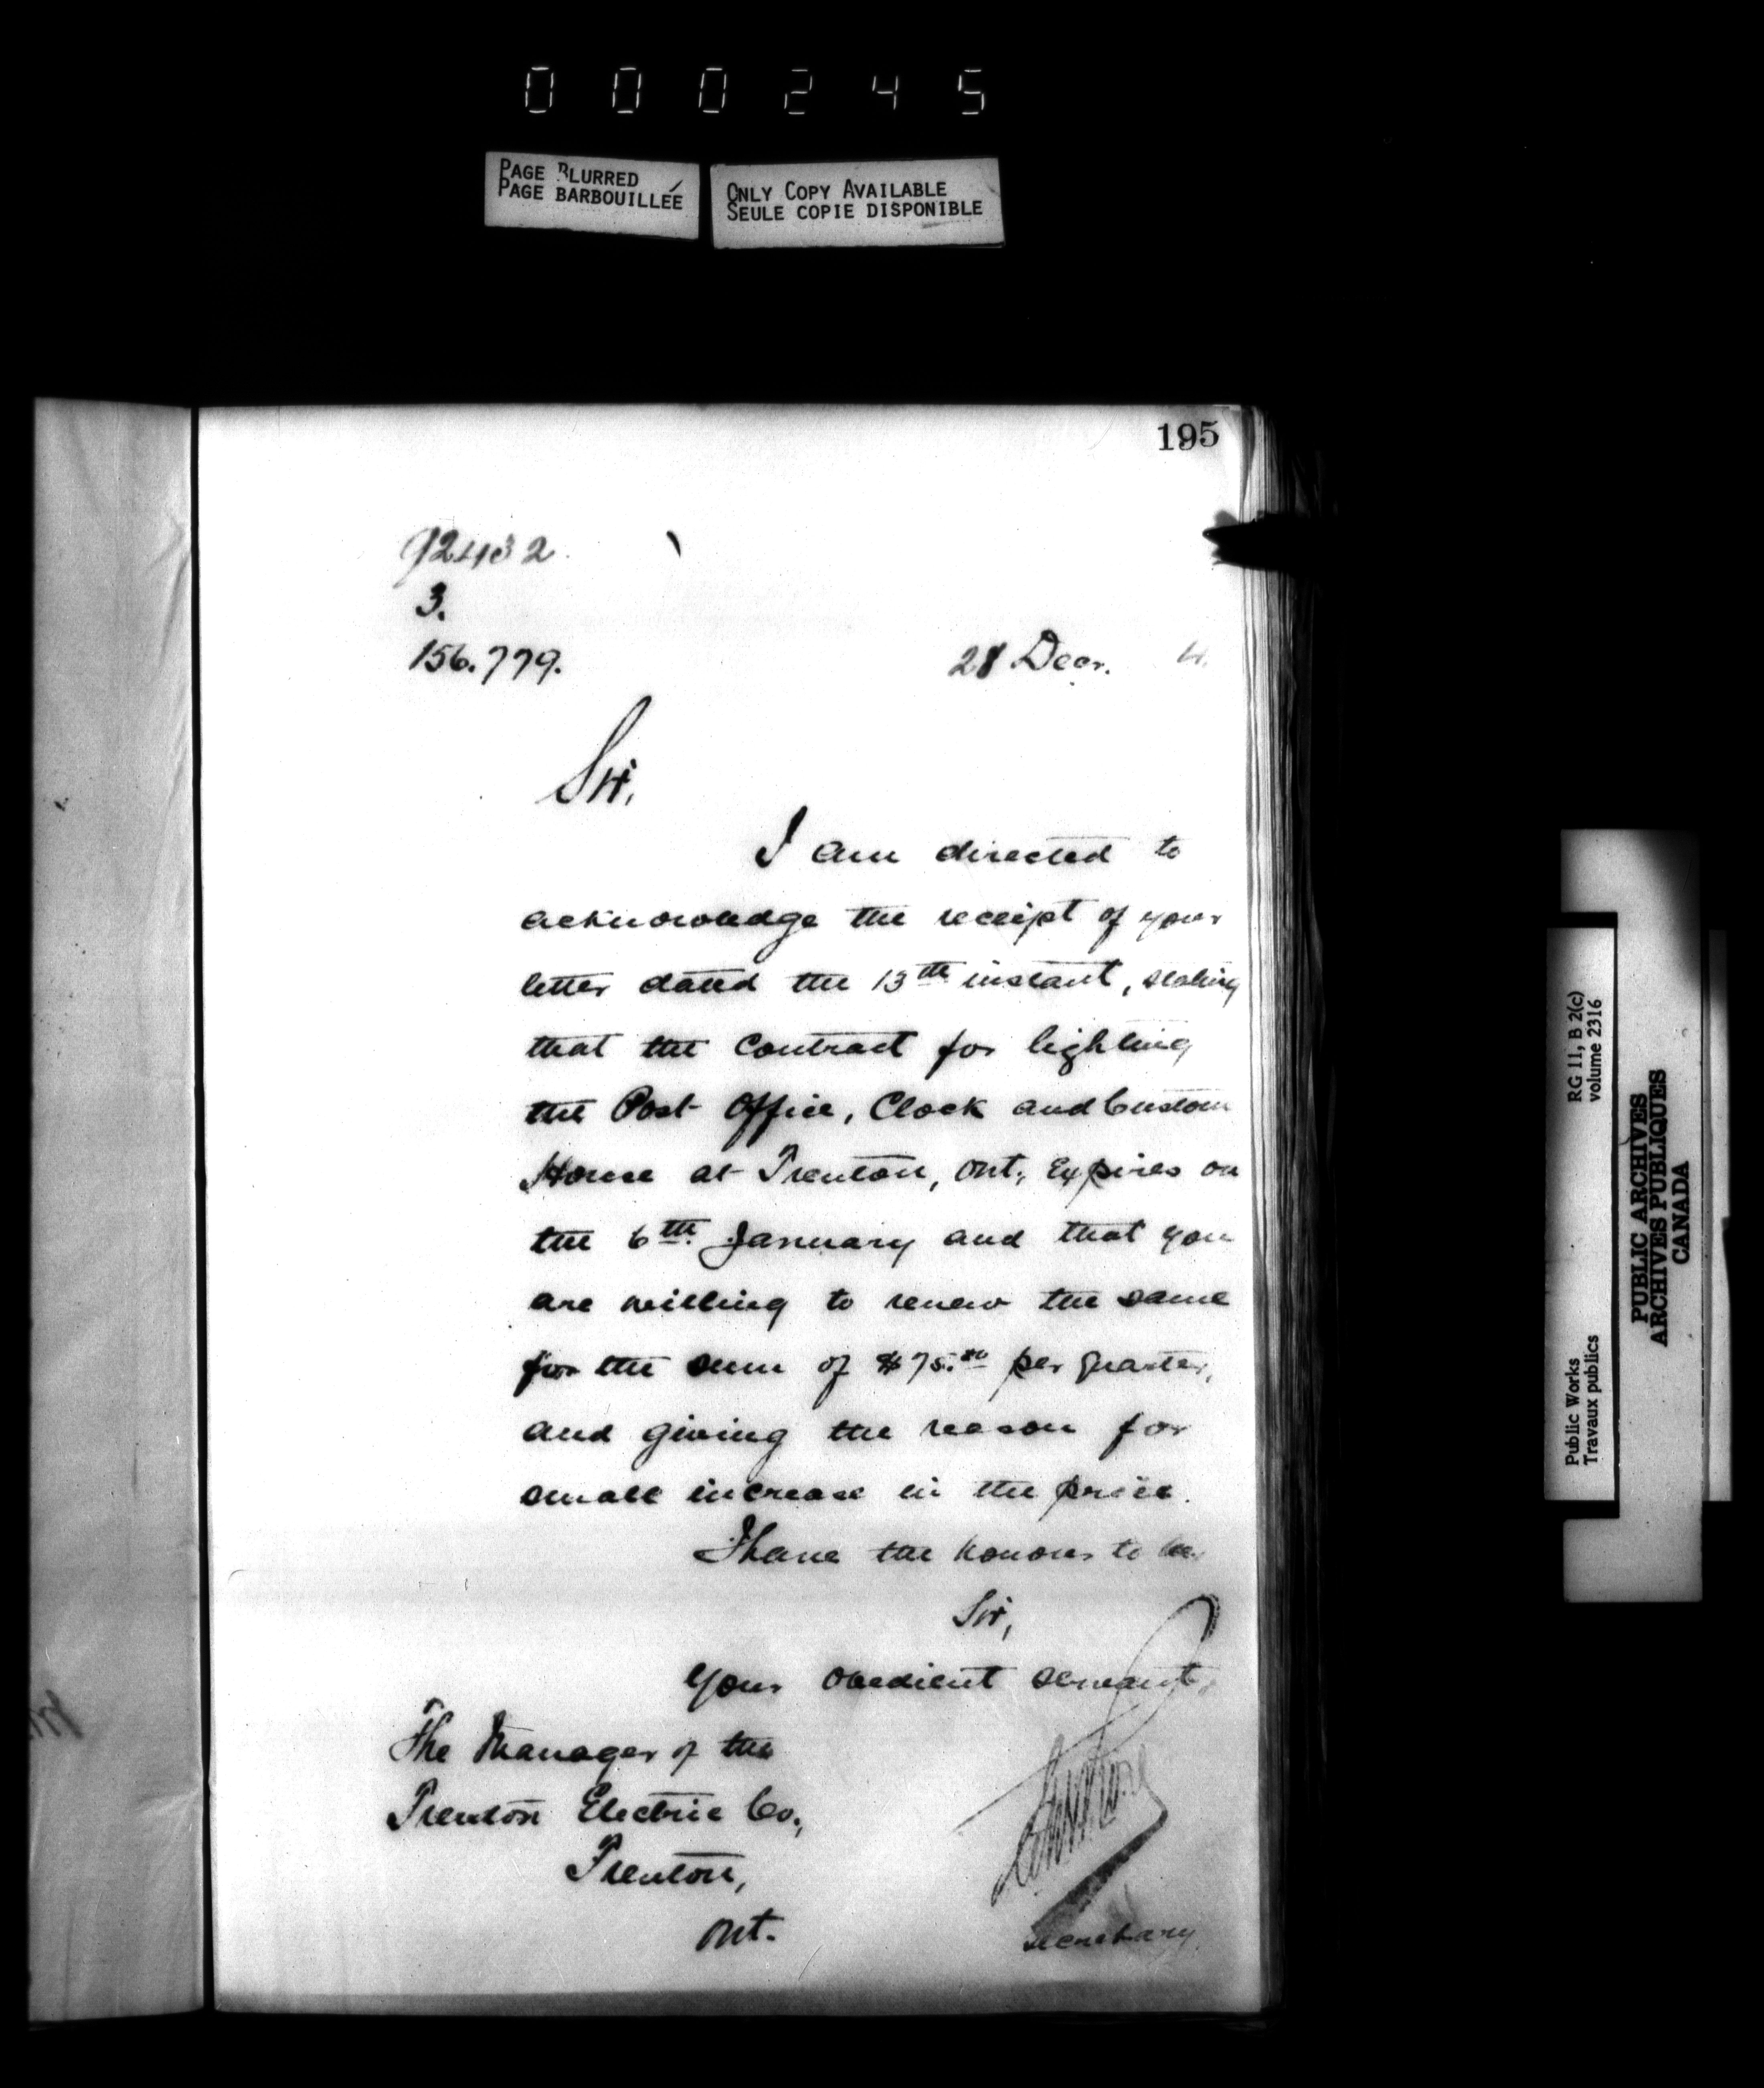 000245
PAGE BLURRED
PAGE BARBOUILLÉE
ONLY COPY AVAILABLE
SEULE COPIE DISPONIBLE
195
92432
3.
156.779.
28 Decr. 4.
Sir,
I am directed to
acknowledge the receipt of your
letter dated the 13th instant, stating
that the Contract for lighting
the Post Office, Clock and Custom
House at Trenton, Ont., expires on
the 6th January and that you
are willing to renew the same
for the sum of $75. per quarter,
and giving the reason for
small increase in the price.
I have the honour to be,
Sir,
Your obedient servant,
The Manager of the
Trenton Electric Co.,
Trenton,
Ont.
Secretary
RG 11, B 2(c)
volume 2316
Public Works
Travaux publics
PUBLIC ARCHIVES
ARCHIVES PUBLIQUES
CANADA